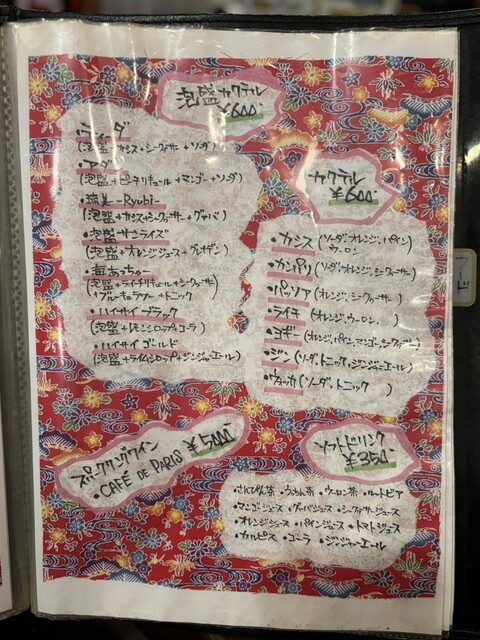 泡盛カクテル
¥600-
・ティーダ
(泡盛+カシス+シークヮサー+ソーダ)
・アダン
(泡盛+ピーチリキュール+マンゴー+ソーダ)
・琉美-Ryubi-
(泡盛+カシス+シークヮサー+グァバ)
・泡盛サンライズ
(泡盛+オレンジジュース+グレナデン)
・海ぁっちゃー
(泡盛+ライチリキュール+シークヮサー
+ブルーキュラソー+トニック)
・ハイサイブラック
(泡盛+レモンシロップ+コーラ)
・ハイサイゴールド
(泡盛+ライムシロップ+ジンジャーエール)
カクテル
¥600-
・カシス(ソーダ、オレンジ、パイン)
ウーロン
・カンパリ(ソーダ、オレンジ、シークヮサー)
・パッソア(オレンジ、シークヮサー)
・ライチ(オレンジ、ウーロン、)
・ヨギー(オレンジ、パイン、マンゴー、シークヮサー)
・ジン(ソーダ、トニック、ジンジャーエール)
・ウォッカ(ソーダ、トニック)
スパークリングワイン ¥5000-
・CAFÉ DE PARIS
ソフトドリンク
¥350-
・さんぴん茶 ・うっちん茶 ・ウーロン茶 ・ルートビア
・マンゴジュース ・グァバジュース ・シークヮサージュース
・オレンジジュース ・パインジュース ・トマトジュース
・カルピス ・コーラ ・ジンジャーエール